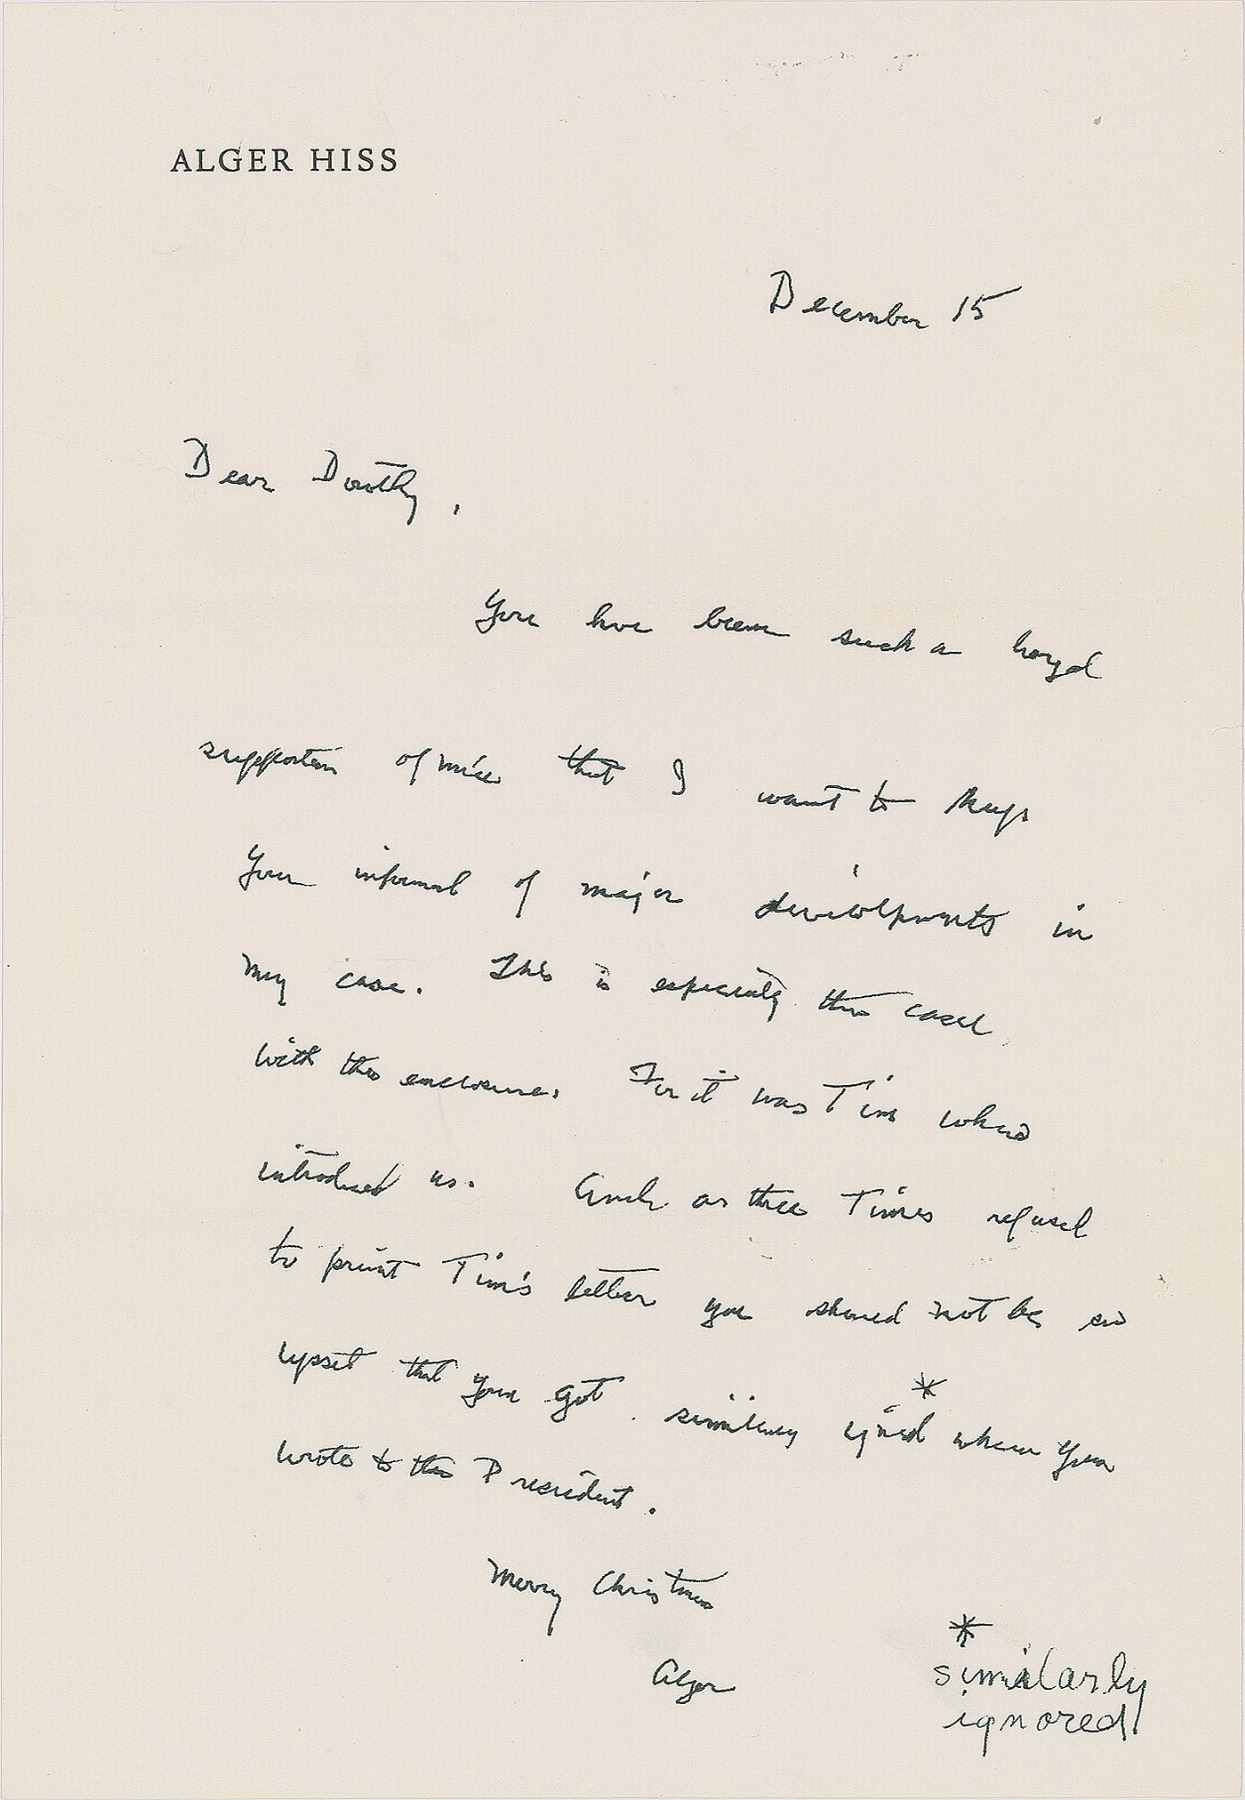 ALGER HISS
December 15
Dear Dorothy,
You have been such a loyal
supporter of mine that I want to keep
you informed of major developments in
my case. This is especially the case
with this enclosure. For it was Tim who
introduced us. And as the Times refused
to print Tim's letter you should not be so
upset that you got similarly ignored * when you
wrote to the President.
Merry Christmas
Alger
*
similarly
ignored